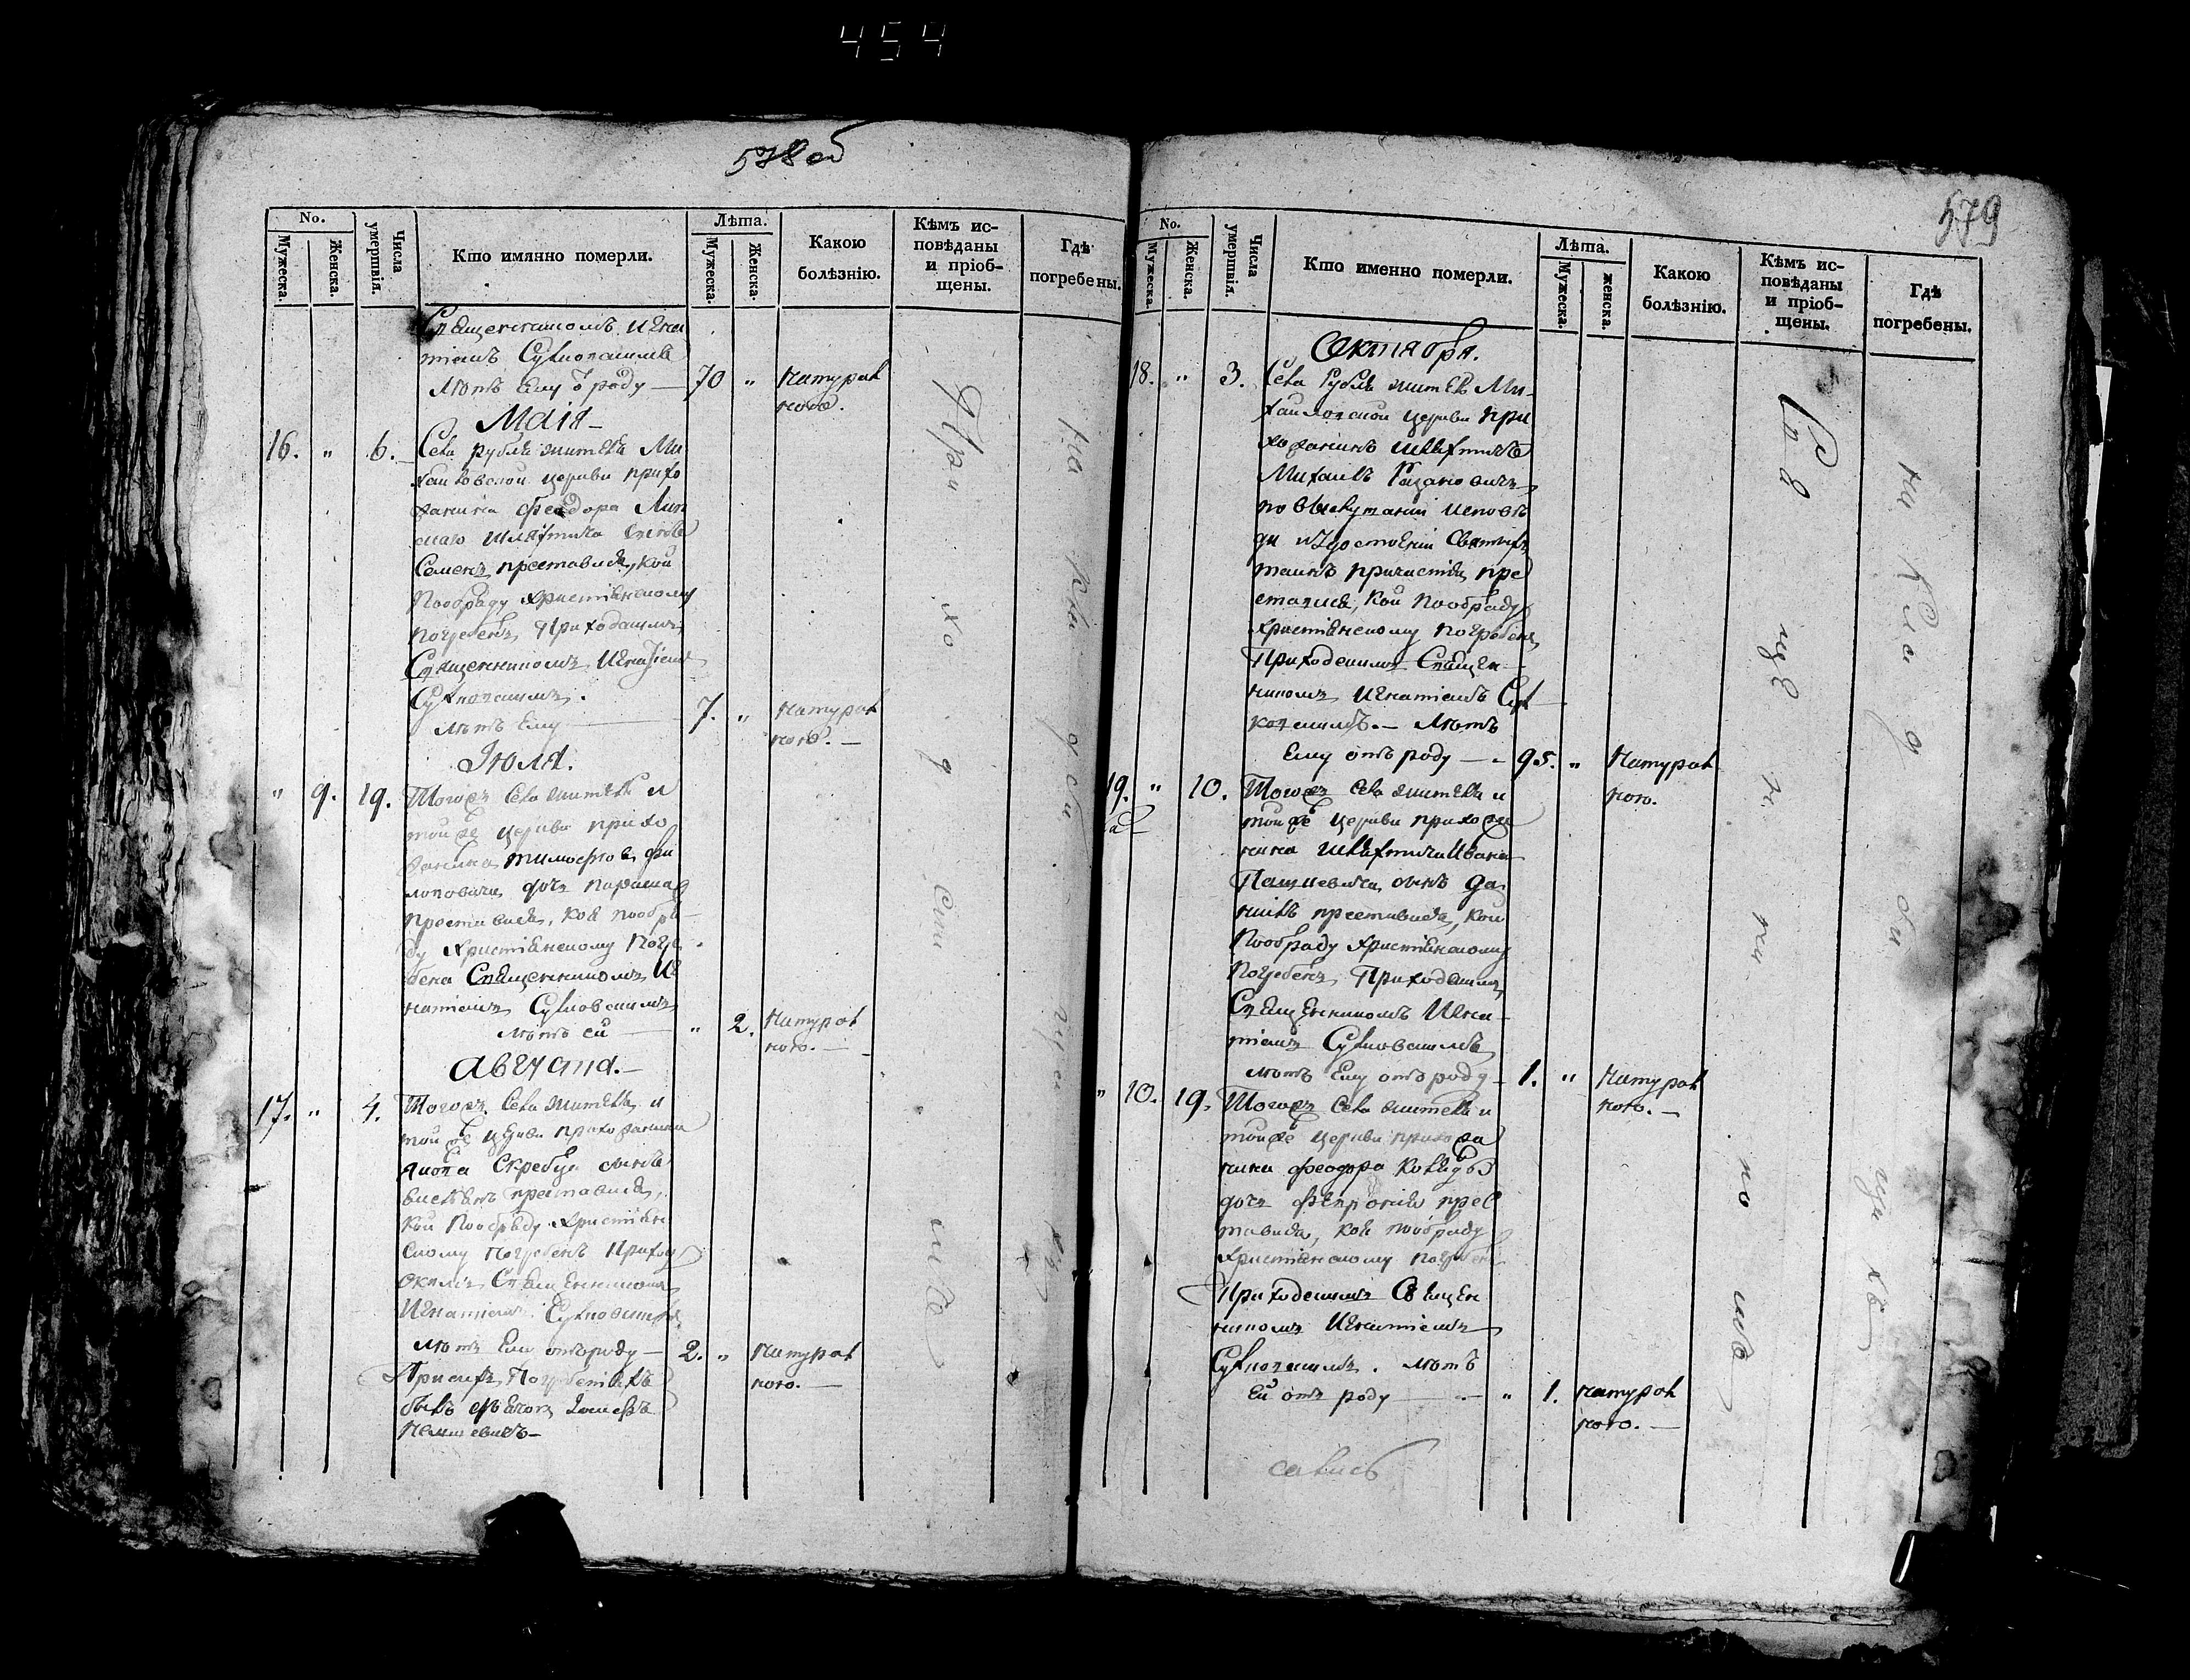 454
578 об
No.
Мужеска.
Женска.
Числа умершвія.
Кто имянно померли.
Лѣта.
Мужеска.
Женска.
Какою
болѣзнію.
Кѣмъ ис-
повѣданы
и пріоб-
щены.
Гдѣ
погребены.
Священникомъ Игна
тіемъ
лѣтъ Ему ѿ роду — 70 „ натурал
ною.
Маія —
16. „ 6. Села рубля жителя Ми
хайловской церкви прихо
жанина Феодора Лип
скаго шляхтича сынъ
Семенъ преставился, кой
пообряду христіянскому
погребенъ, Приходскимъ
Священникомъ Игнатіемъ
лѣтъ Ему — 7. „ натурал
ною. —
Іюля.
„ 9. 19. Тогожъ села жителя и
тойже церкви прихо
жанина Тимофея Фи
липовича дочь
преставися, коя пообря
ду христіянскому погре
бена Священникомъ Иг
натіемъ
лѣтъ ей — „ 2. натурал
ною. —
Августа. —
17. „ 4. Тогожъ села жителя и
тойже церкви прихожанина
Скребца сынъ
преставился,
кой пообряду христіян
скому погребенъ Приход
скимъ Священникомъ
Игнатіемъ
лѣтъ Ему отъроду — 2. „ натурал
ною. —
При сихъ погребеніяхъ
былъ
Приходскимъ
на кладбищахъ
579
No.
Мужеска.
Женска.
Числа умершвія.
Кто именно померли.
Лѣта.
Мужеска.
женска.
Какою
болѣзнію.
Кѣмъ ис-
повѣданы
и пріоб-
щены.
Гдѣ
погребены.
Октября.
18. „ 3. Села Рубля житель Ми-
хайловской церкви при
хожанинъ шляхтичъ
Михаилъ
по выслушаніи исповѣ
ди и удостоеніи Святыхъ
таинъ причастія, пре
ставися, кой пообряду
христіянскому погребенъ,
Приходскимъ Священ-
никомъ Игнатіемъ
лѣтъ
Ему отъ роду — 95. „ натурал
ною.
19. „ 10. Тогожъ села жителя и
тойже церкви прихожа
нина шляхтича Ивана
Пашкевича, сынъ Да
ніилъ преставися, кой
пообряду христіянскому
погребенъ, Приходскимъ,
Священникомъ Игна-
тіемъ
лѣтъ Ему отъ роду — 1. „ натурал
ною. —
„ 10. 19. Тогожъ села жителя и
тойже церкви прихожа
нина Феодора
дочь прес
тавися, коя пообряду
христіянскому погребена
Приходскимъ Священ
никомъ Игнатіемъ
лѣтъ
Ей отъ роду — „ 1. натурал
ною. —
Священникомъ
на кладбищахъ